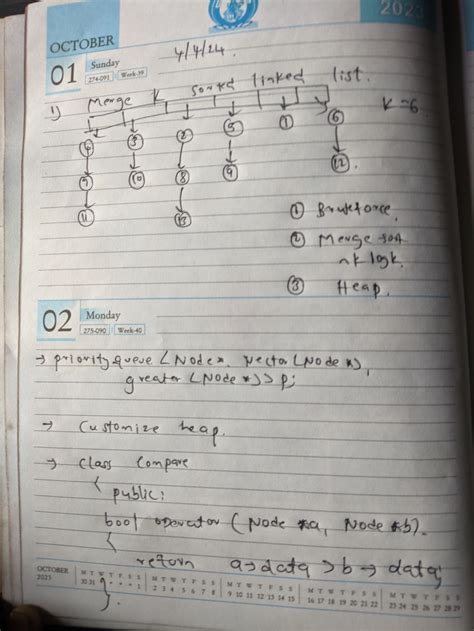 2023
OCTOBER
01 Sunday
274-091 Week-39
4/4/24.
1) Merge K sorted linked list.
K=6
4 3 2 5 1 6
7 10 8 9 12
11 13
① Bruteforce.
② Merge sort
nk logk.
③ Heap.
02 Monday
275-090 Week-40
→ priority queue <Node*, Vector<Node*>,
greater <Node*>> p;
→ Customize heap.
→ Class Compare
{
public:
bool operator (Node *a, Node *b).
{
return a->data > b->data;
}.
OCTOBER
2023
M T W T F S S M T W T F S S M T W T F S S M T W T F S S M T W T F S S
30 31 1 2 3 4 5 6 7 8 9 10 11 12 13 14 15 16 17 18 19 20 21 22 23 24 25 26 27 28 29